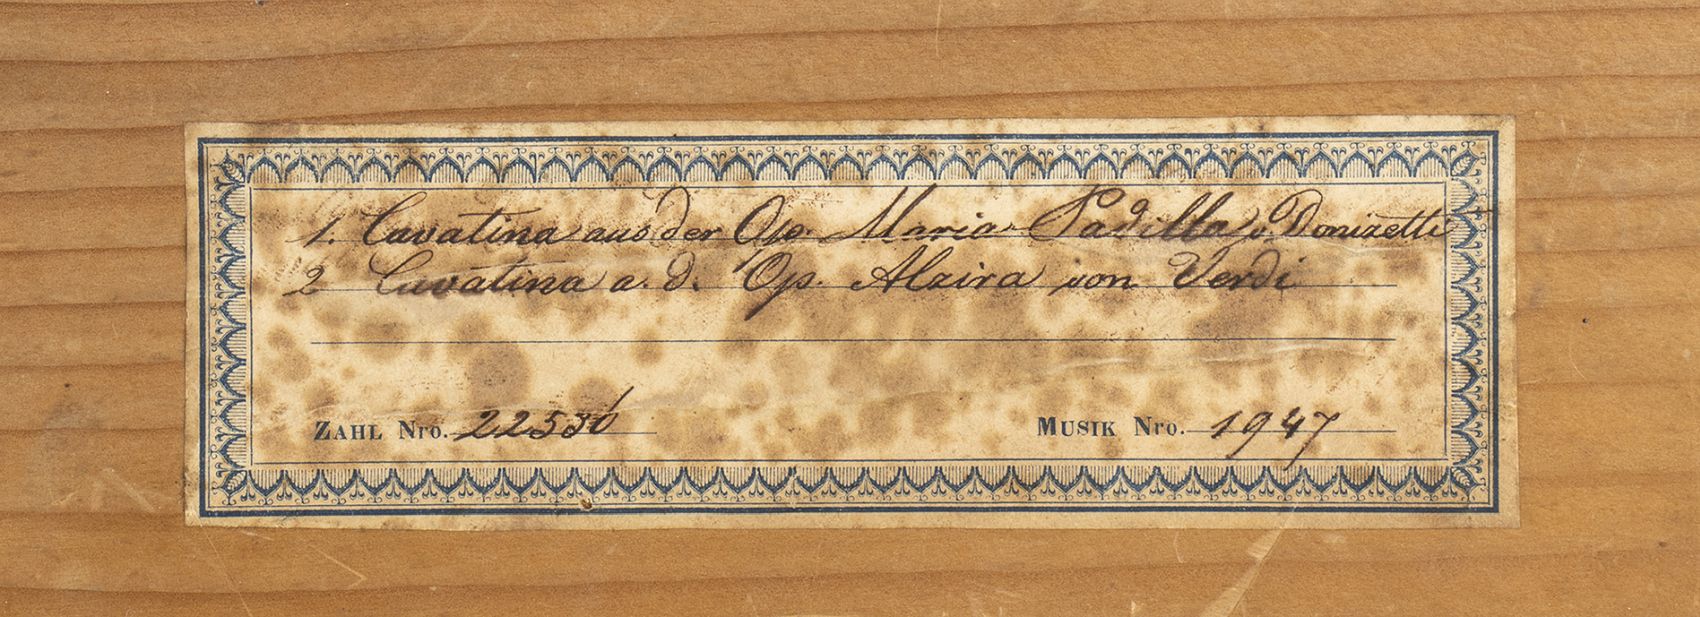 1. Cavatina aus der Op. Maria Padilla v. Donizetti
2 Cavatina a. d. Op. Alzira von Verdi
ZAHL Nro. 22530 MUSIK Nro. 1947